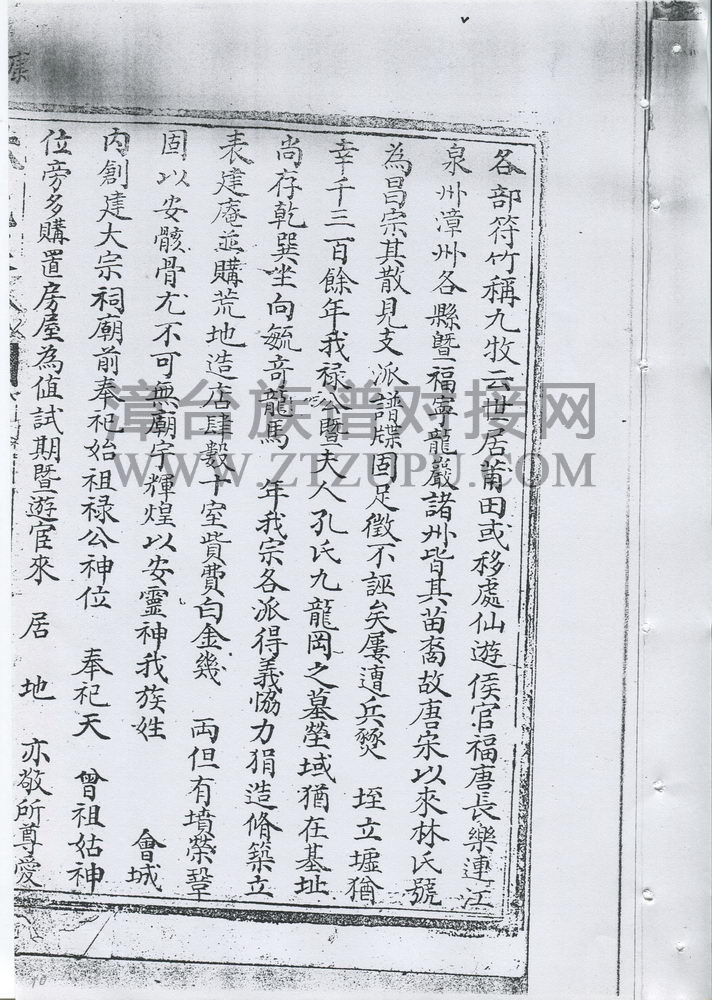 各部符竹稱九牧云世居莆田或移處仙遊侯官福唐長樂連江
泉州漳州各縣暨福寧龍巖諸州皆其苗裔故唐宋以來林氏號
為昌宗其散見支派譜牒固足徵不誣矣屢遭兵燹 垤立墟猶
幸千三百餘年我禄公暨夫人孔氏九龍岡之墓塋域猶在基址
尚存乾巽坐向毓竒龍馬 年我宗各派得義恊力捐造脩築立
表建庵並購荒地造店肆數十室貲費白金幾 両但有墳塋鞏
固以安骸骨尤不可無廟宇輝煌以安靈神我族姓 會城
内創建大宗祠廟前奉祀始祖禄公神位 奉祀天 曾祖姑神
位旁多購置房屋為值試期暨遊宦來 居 地 亦敬所尊愛
漳台族谱对接网
WWW.ZTZUPU.COM
10